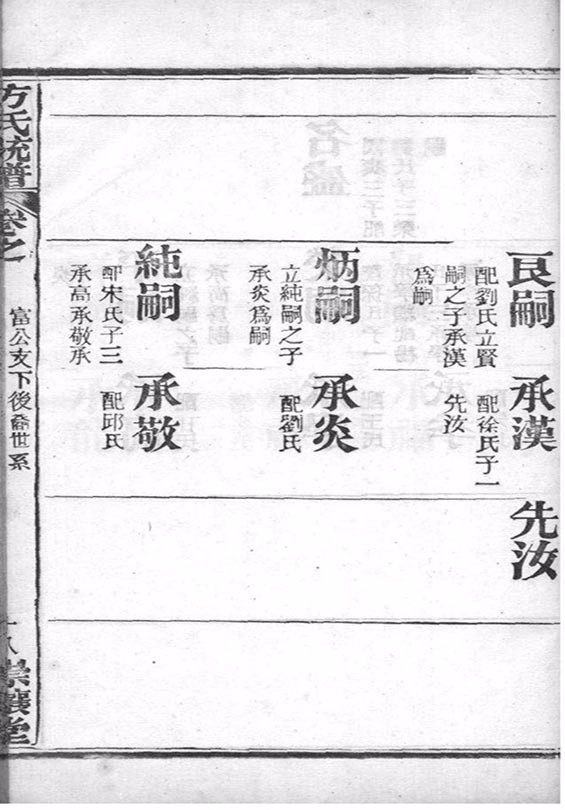 良嗣
配劉氏立賢
嗣之子承漢
爲嗣
承漢
配徐氏子一
先汝
先汝
炳嗣
立純嗣之子
承炎爲嗣
承炎
配劉氏
純嗣
配宋氏子三
承高承敬承
炎
承敬
配邱氏
方氏統譜
卷之
富公支下後裔世系
十八
崇讓堂